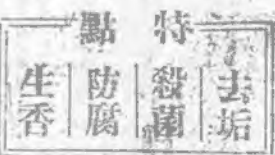 特點
去垢
殺菌
防腐
生香